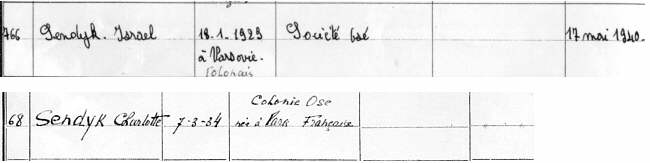 766 Sendyk. Israel 18.1.1929 Société Osé 17 mai 1940.
à Varsovie.
Polonais
Colonie Ose
68 Sendyk Charlotte 7-3-34 née à Paris Française